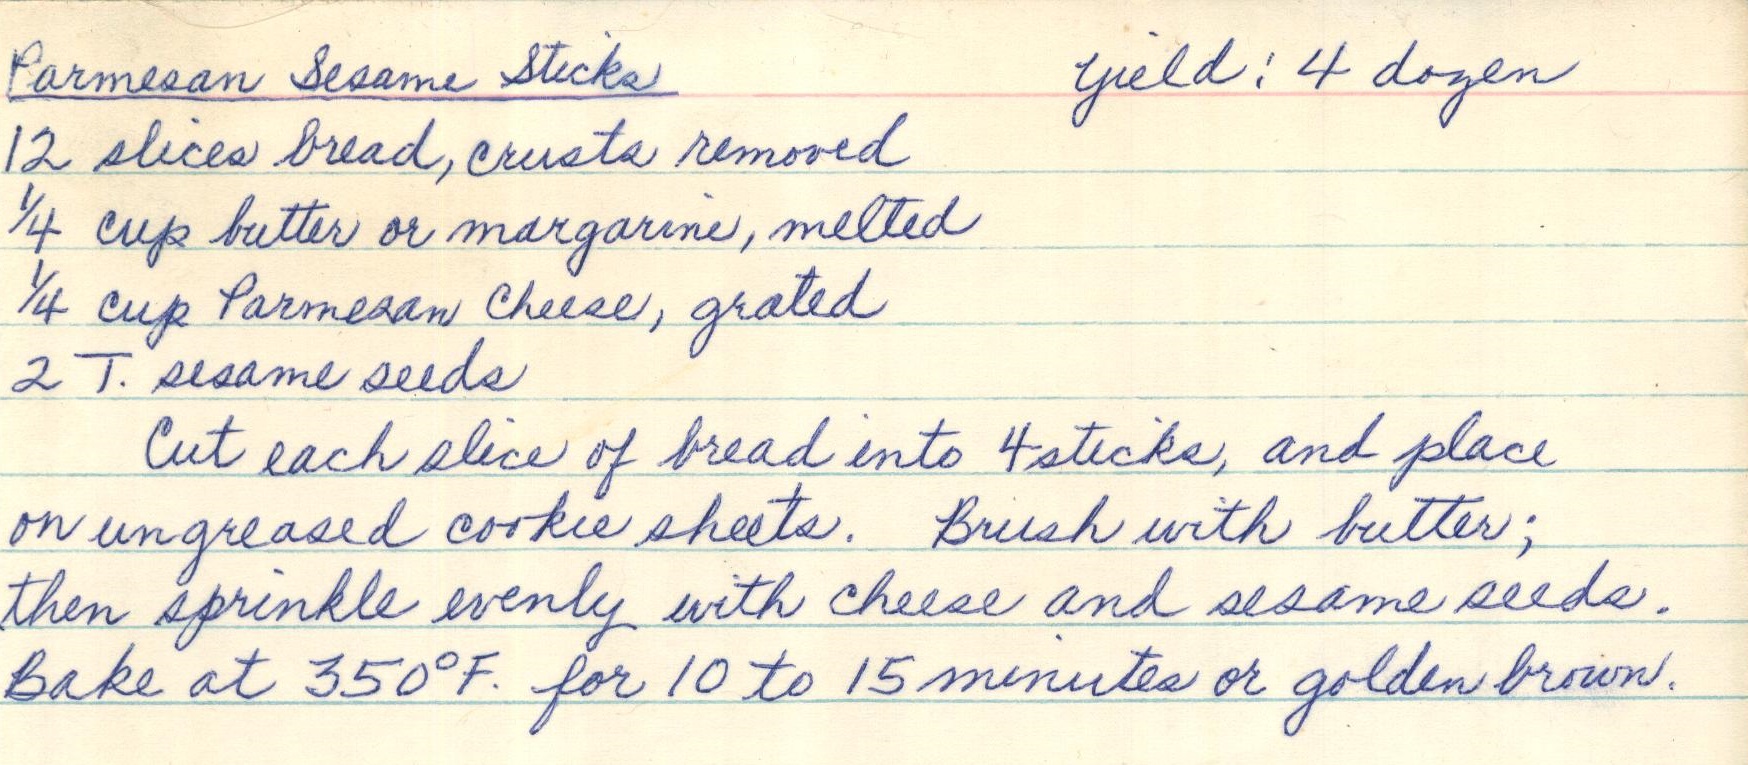 Parmesan Sesame Sticks Yield: 4 dozen
12 slices bread, crusts removed
1/4 cup butter or margarine, melted
1/4 cup Parmesan Cheese, grated
2 T. sesame seeds
Cut each slice of bread into 4 sticks, and place
on ungreased cookie sheets. Brush with butter;
then sprinkle evenly with cheese and sesame seeds.
Bake at 350°F. for 10 to 15 minutes or golden brown.